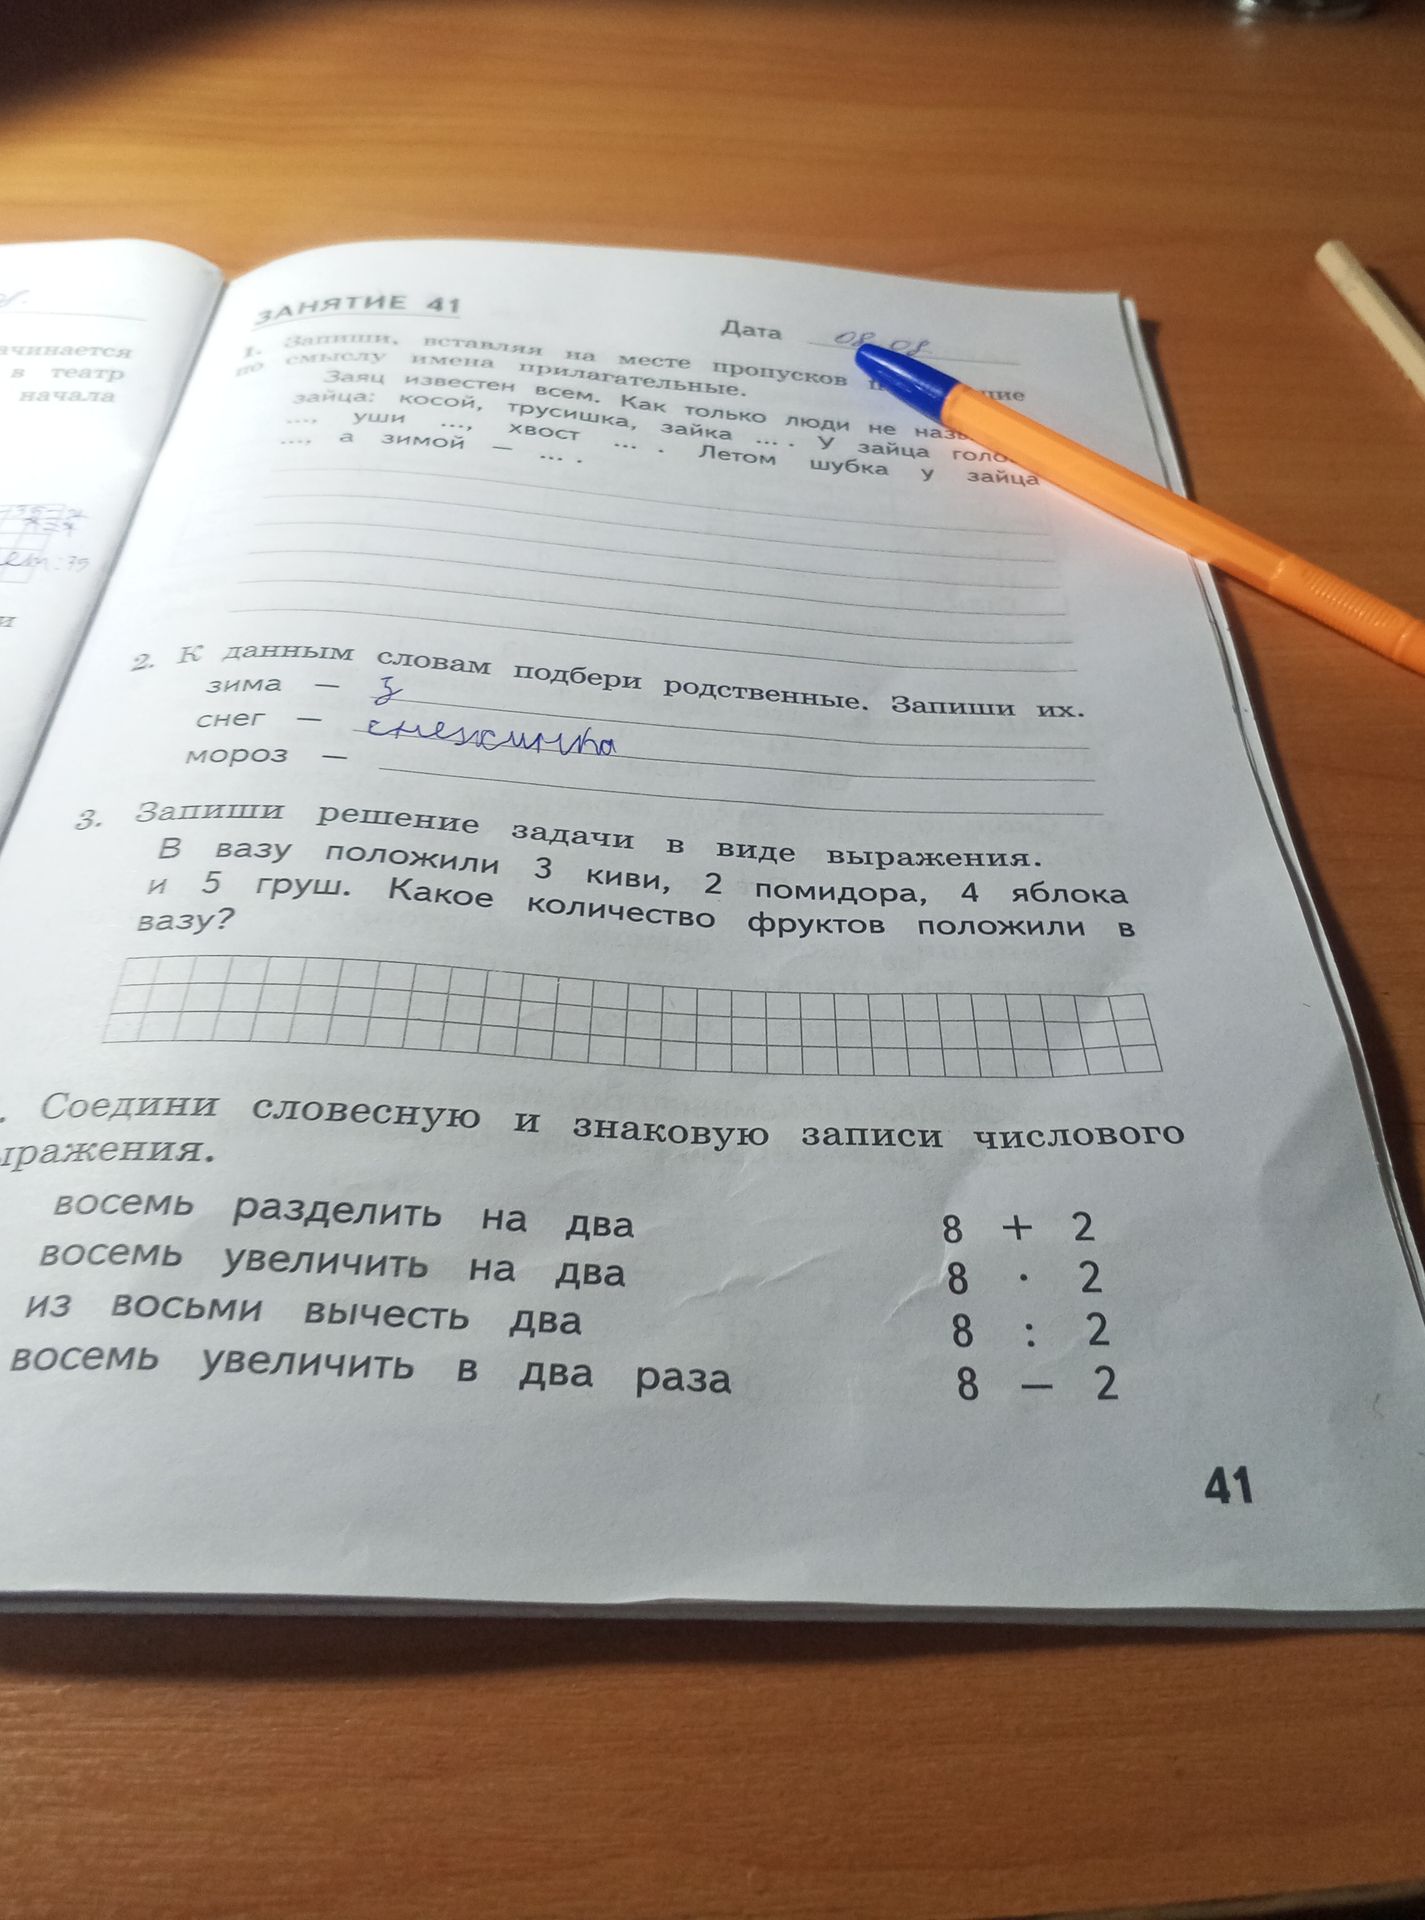 ачинается
в театр
начала
ЗАНЯТИЕ 41
Дата 08.08
1. Запиши, вставляя на месте пропусков
по смыслу имена прилагательные.
Заяц известен всем. Как только люди не
зайца: косой, трусишка, зайка ... . У зайца
..., уши ..., хвост ... . Летом шубка у зайца
..., а зимой — ... .
2. К данным словам подбери родственные. Запиши их.
зима — з
снег — снежинка
мороз —
3. Запиши решение задачи в виде выражения.
В вазу положили 3 киви, 2 помидора, 4 яблока
и 5 груш. Какое количество фруктов положили в
вазу?
. Соедини словесную и знаковую записи числового
ыражения.
восемь разделить на два 8 + 2
восемь увеличить на два 8 · 2
из восьми вычесть два 8 : 2
восемь увеличить в два раза 8 — 2
41